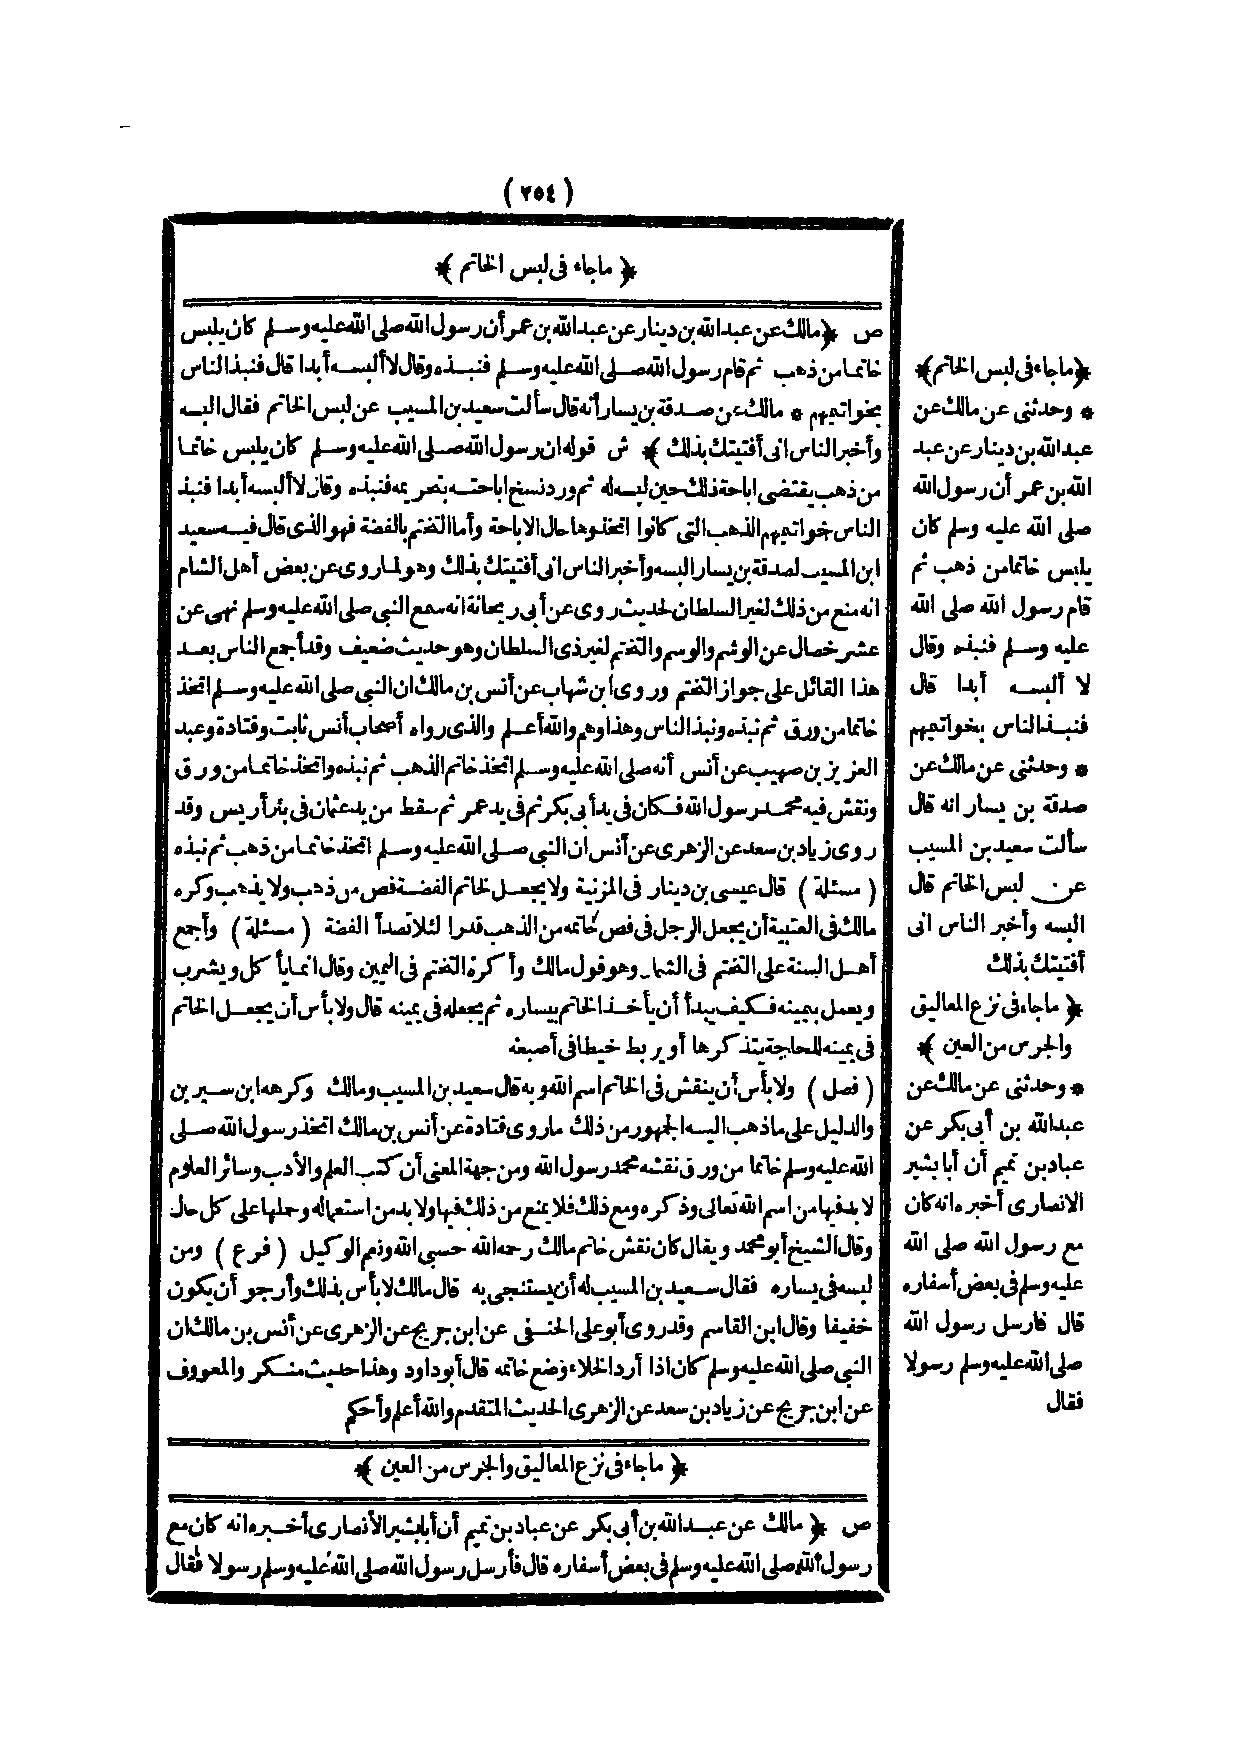 (٢٥٤)
﴿ ماجاء فى لبس الخاتم ﴾
ص ﴿ مالك عن عبد الله بن دينار عن عبد الله بن عمر أن رسول الله صلى الله عليه وسلم كان يلبس
خاتما من ذهب ثم قام رسول الله صلى الله عليه وسلم فنبذه وقال لا ألبسه أبدا قال فنبذ الناس
بخواتيمهم * مالك عن صدقة بن يسار أنه قال سألت سعيد بن المسيب عن لبس الخاتم فقال البسه
وأخبر الناس انى أفتيتك بذلك ﴾ ش قوله ان رسول الله صلى الله عليه وسلم كان يلبس خاتما
من ذهب يقتضى اباحة ذلك حين لبسه له ثم ورد نسخ اباحته بتحريمه فنبذه وقال لا ألبسه أبدا فنبذ
الناس خواتيمهم الذهب التى كانوا اتخذوها حال الاباحة وأما التختم بالفضة فهو الذى قال فيه سعيد
ابن المسيب لصدقة بن يسار البسه وأخبر الناس انى أفتيتك بذلك وهو لما روى عن بعض أهل الشام
انه منع من ذلك لغير السلطان لحديث روى عن أبى ريحانة انه سمع النبى صلى الله عليه وسلم نهى عن
عشر خصال عن الوشم والوسم والتختم لغير ذى السلطان وهو حديث ضعيف وقد أجمع الناس بعد
هذا القائل على جواز التختم وروى ابن شهاب عن أنس بن مالك ان النبى صلى الله عليه وسلم اتخذ
خاتما من ورق ثم نبذه ونبذ الناس وهذا وهم والله أعلم والذى رواه أصحاب أنس ثابت وقتادة وعبد
العزيز بن صهيب عن أنس أنه صلى الله عليه وسلم اتخذ خاتم الذهب ثم نبذه واتخذ خاتما من ورق
ونقش فيه محمد رسول الله فكان فى يد أبى بكر ثم فى يد عمر ثم سقط من يد عثمان فى بئر أريس وقد
روى زياد بن سعد عن الزهرى عن أنس ان النبى صلى الله عليه وسلم اتخذ خاتما من ذهب ثم نبذه
( مسئلة ) قال عيسى بن دينار فى المزنية ولا يجعل لخاتم الفضة فص من ذهب ولا يذهب وكره
مالك فى العتبية أن يجعل الرجل فى فص خاتمه من الذهب قدرا لئلا تصدأ الفضة ( مسئلة ) وأجمع
أهل السنة على التختم فى الشمال وهو قول مالك وأكره التختم فى اليمين وقال انما يأكل ويشرب
ويعمل بيمينه فكيف يبدأ أن يأخذ الخاتم بيساره ثم يجعله فى يمينه قال ولا بأس أن يجعل الخاتم
فى يمينه للحاجة يتذكرها أو يربط خيطا فى أصبعه
( فصل ) ولا بأس أن ينقش فى الخاتم اسم الله وبه قال سعيد بن المسيب ومالك وكرهه ابن سيرين
والدليل على ما ذهب اليه الجمهور من ذلك ما روى قتادة عن أنس بن مالك اتخذ رسول الله صلى
الله عليه وسلم خاتما من ورق نقشه محمد رسول الله ومن جهة المعنى أن كتب العلم والأدب وسائر العلوم
لا بد فيها من اسم الله تعالى وذكره ومع ذلك فلا يمنع من ذلك فيها ولا بد من استعماله وحملها على كل حال
وقال الشيخ أبو محمد ويقال كان نقش خاتم مالك رحمه الله حسبى الله ونعم الوكيل ( فرع ) ومن
لبسه فى يساره فقال سعيد بن المسيب له أن يستنجى به قال مالك لا بأس بذلك وأرجو أن يكون
خفيفا وقال ابن القاسم وقد روى أبو على الحنفى عن ابن جريج عن الزهرى عن أنس بن مالك ان
النبى صلى الله عليه وسلم كان اذا أراد الخلاء وضع خاتمه قال أبو داود وهذا حديث منكر والمعروف
عن ابن جريج عن زياد بن سعد عن الزهرى الحديث المتقدم والله أعلم وأحكم
﴿ ماجاء فى نزع المعاليق والجرس من العين ﴾
ص ﴿ مالك عن عبد الله بن أبى بكر عن عباد بن تميم أن أبا بشير الأنصارى أخبره انه كان مع
رسول الله صلى الله عليه وسلم فى بعض أسفاره قال فأرسل رسول الله صلى الله عليه وسلم رسولا فقال
﴿ ماجاء فى لبس الخاتم ﴾
* وحدثنى عن مالك عن
عبد الله بن دينار عن عبد
الله بن عمر أن رسول الله
صلى الله عليه وسلم كان
يلبس خاتما من ذهب ثم
قام رسول الله صلى الله
عليه وسلم فنبذه وقال
لا ألبسه أبدا قال
فنبذ الناس بخواتيمهم
* وحدثنى عن مالك عن
صدقة بن يسار انه قال
سألت سعيد بن المسيب
عن لبس الخاتم قال
البسه وأخبر الناس انى
أفتيتك بذلك
﴿ ماجاء فى نزع المعاليق
والجرس من العين ﴾
* وحدثنى عن مالك عن
عبد الله بن أبى بكر عن
عباد بن تميم أن أبا بشير
الانصارى أخبره انه كان
مع رسول الله صلى الله
عليه وسلم فى بعض أسفاره
قال فارسل رسول الله
صلى الله عليه وسلم رسولا
فقال